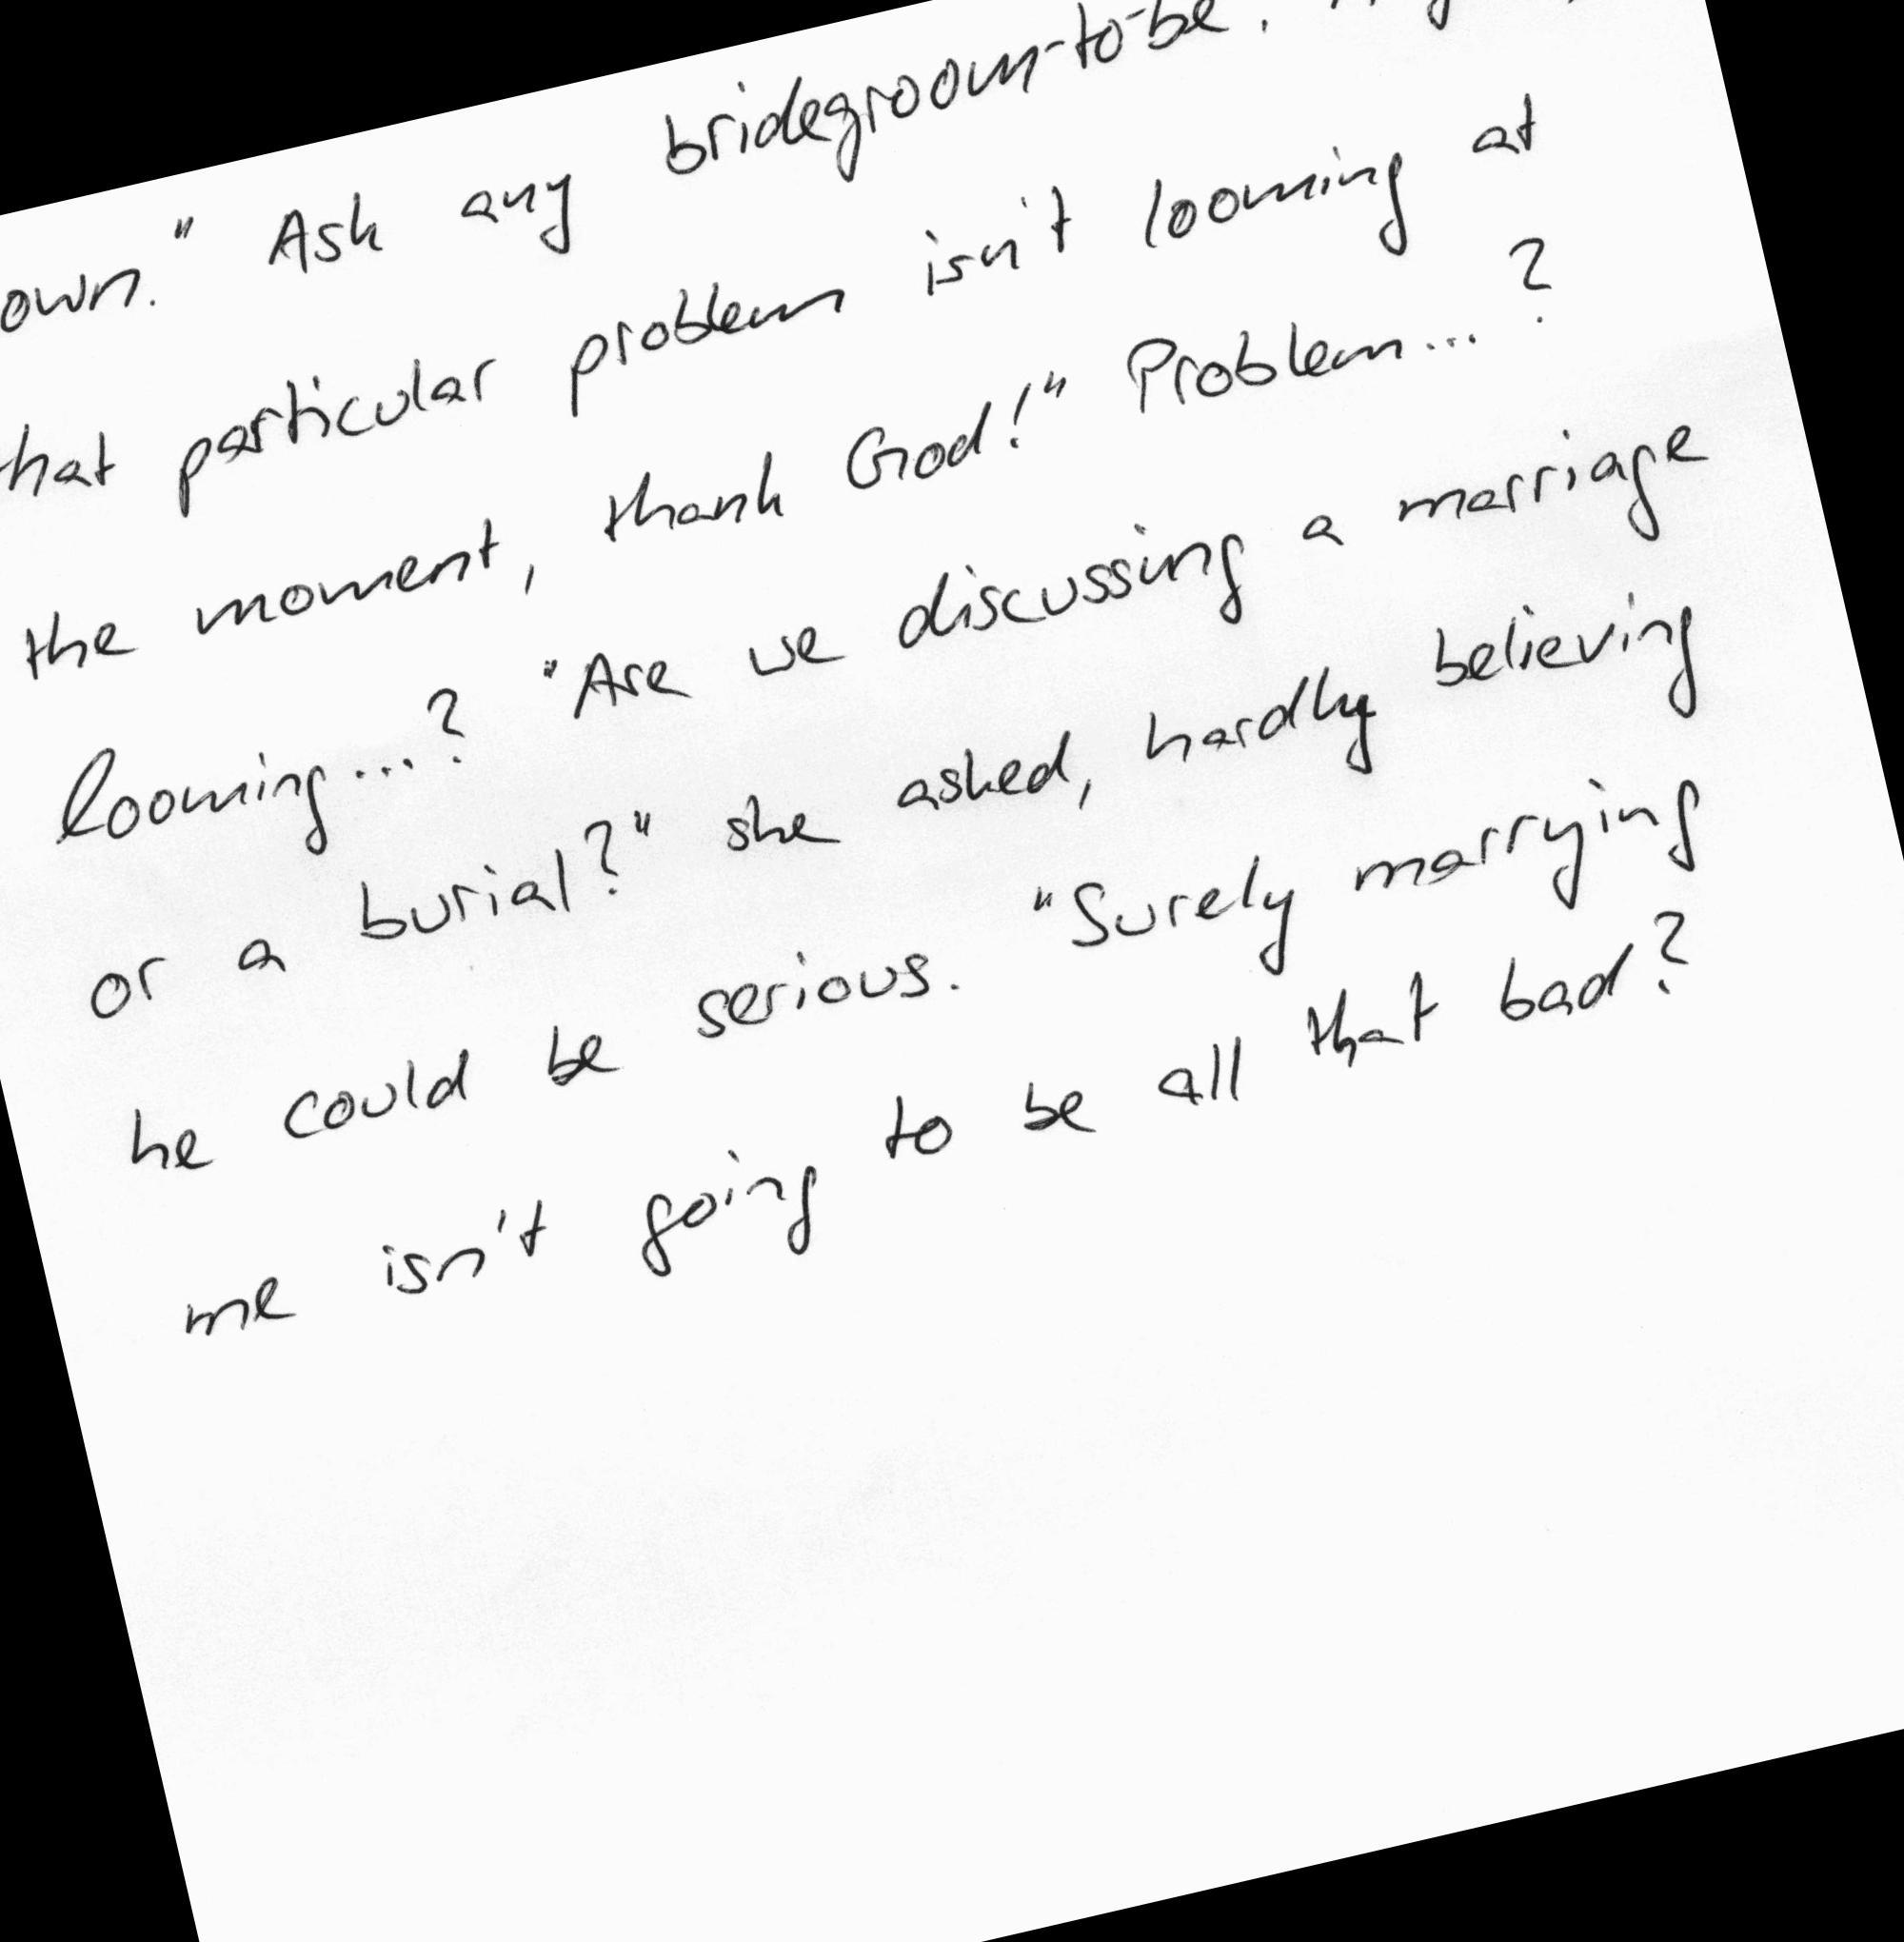 own." Ask any bridegroom-to-be.
that particular problem isn't looming at
the moment, thank God!" Problem...?
looming...? "Are we discussing a marriage
or a burial?" she asked, hardly believing
he could be serious. "Surely marrying
me isn't going to be all that bad?